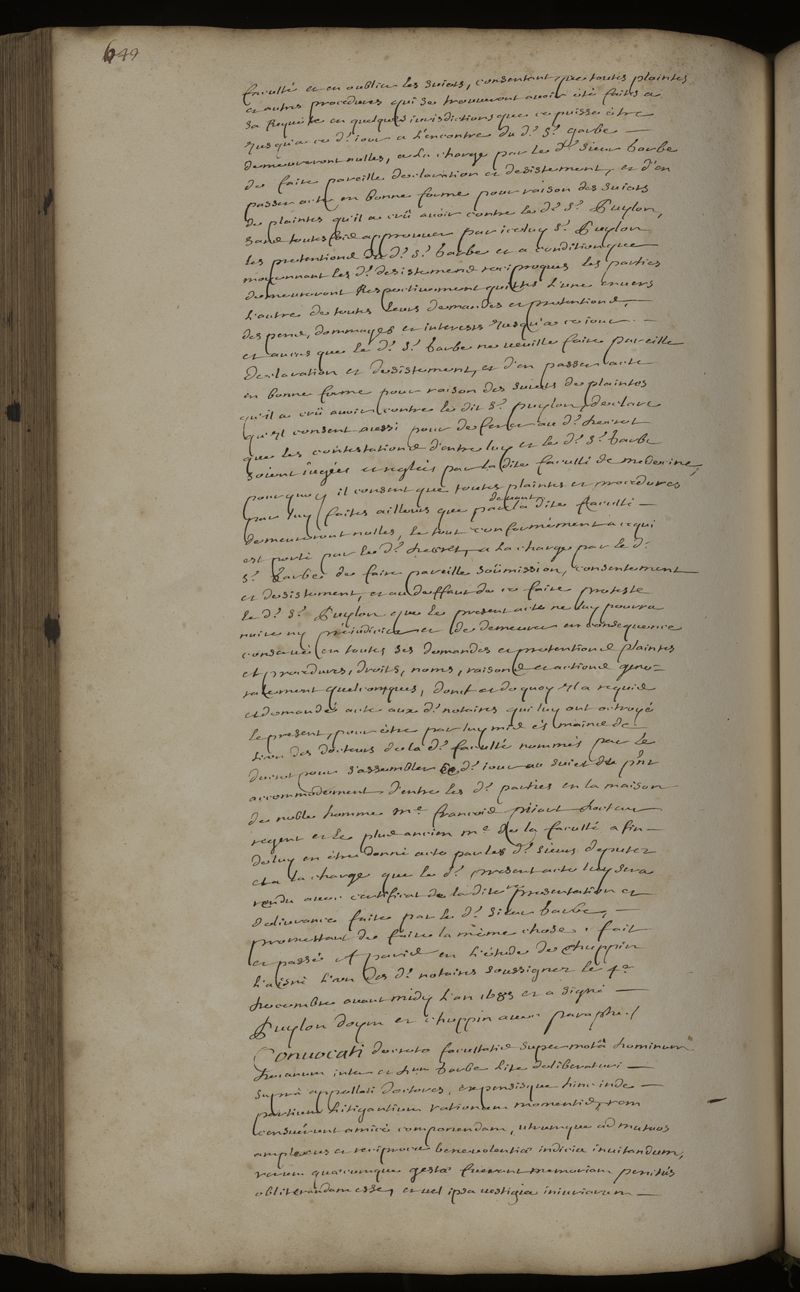 649
faculté et en oublier les suiets, consentant que toutes plaintes
et autres procedures qui se trouveront avoir été faites a
sa Requête en quelques iurisdictions que ce puisse être
Jusqu'a ce d.t iour a L'encontre du d.t S.r Barbe —
demeureront nulles, a La charge par le d.t Sieur Barbe
de faire pareille declaration et desistement, et d'en
passer acte en bonne forme pour raison des suiets
de plaintes qu'il a crû avoir contre le d.t S.r Puylon,
sans toutesfois approuver par iceluy S.r Puylon
les pretentions du d.t S.r Barbe et a condition que
moyennant les d.ts desistemens reciproques les parties
demeureront Respectivement quittes L'une envers
L'autre de toutes leurs demandes et pretentions, —
despens, dommages et interests Jusqu'a ce iour. —
et au cas que le d.t S.r Barbe ne veuille faire pareille
declaration et desistement, et d'en passer acte
en bonne forme pour raison des suiets de plaintes
qu'il a crû avoir contre le dit S.r Puylon, declare
qu'il consent aussi pour deferer au d.t decret
que les contestations d'entre luy et le d.t S.r Barbe
soient iugées et reglées par la dite faculté de medecine,
pourquoy il consent que toutes plaintes et procedures
par luy faites ailleurs que par devant la dite faculté —
demeureront nulles, le tout conformément a ce qui
est porté par le d.t decret, a la charge par le d.t
S.r Barbe de faire pareille soûmission, consentement
et desistement, et au deffaut de ce faire proteste
le d.t S.r Puylon que le present acte ne luy pourra
nuire ny préiudicier et de demeurer en consequence
conservé en toutes ses demandes et pretentions plaintes
et procedures, droits, noms, raisons et actions gene=
ralement quelconques, dont et de quoy il a requis
et demandé acte aux d.ts notaires qui luy ont octroyé
le present, pour être par luy mis és mains de
l'un des docteurs de la d.te faculté nommés par le
decret pour s'assembler ce d.t iour au suiet du p.nt
accommodement d'entre les d.tes parties en la maison
de noble homme M.e François docteur
regent et le plus ancien m.e de la faculté afin —
de luy en être donné acte par les d.ts sieurs deputez
et a la charge que le d.t present acte luy sera
rendu avec certificat de la dite presentation et
delivrance faite par le d.t Sieur Barbe, —
promettant de faire la même chose. fait
et passé a Paris en L'étude de Chuppin
L'aisné L'un des d.ts notaires soussignez le 4.e
decembre avant midy L'an 1685 et a signé —
Puylon doyen et Chuppin avec paraphe./
Convocati decreto facultatis super motâ hominum
inter et Barbe lite deliberaturi —
suprà appellati doctores, expensisque hinc inde —
partium litigantium rationum momentis, rem
censuerunt amicè componendam, utrumque ad mutuos
amplexus et reciproca benevolentiæ indicia invitandum,
rerum quæcumque gestæ fuerant memoriam penitùs
obliterandam esse, et vel ipsa vestigia iniuriarum —